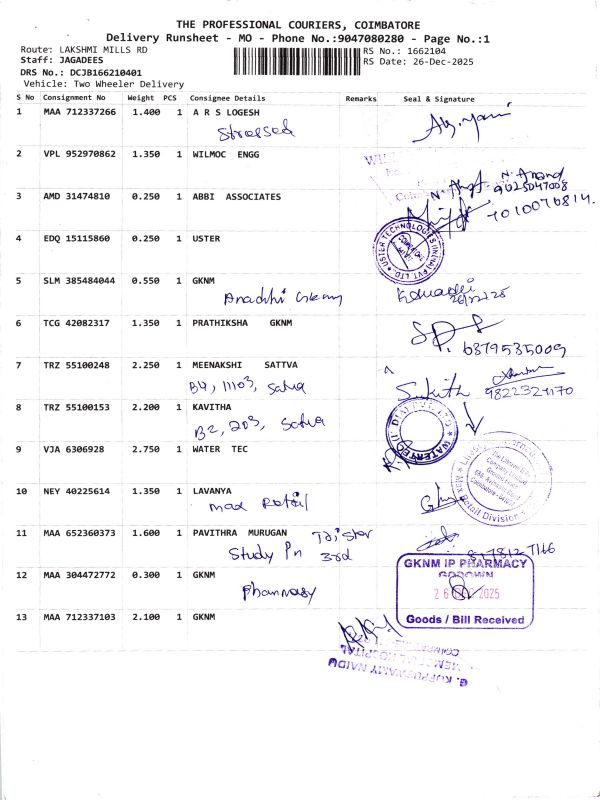 THE PROFESSIONAL COURIERS, COIMBATORE
Delivery Runsheet - MO - Phone No.:9047080280 - Page No.:1
Route: LAKSHMI MILLS RD
RS No.: 1662104
Staff: JAGADEES
RS Date: 26-Dec-2025
DRS No.: DCJB166210401
Vehicle: Two Wheeler Delivery
S No Consignment No Weight PCS Consignee Details Remarks Seal & Signature
1 MAA 712337266 1.400 1 A R S LOGESH
Stressed
2 VPL 952970862 1.350 1 WILMOC ENGG
N. Anand
9025047008
3 AMD 31474810 0.250 1 ABBI ASSOCIATES
7010076814.
4 EDQ 15115860 0.250 1 USTER
USTER TECHNOLOGIES (INDIA) PVT LTD.
5 SLM 385484044 0.550 1 GKNM
26/12/25
6 TCG 42082317 1.350 1 PRATHIKSHA GKNM
6379535009
7 TRZ 55100248 2.250 1 MEENAKSHI SATTVA
B4, 11103, Satva
Sukith 9822321170
8 TRZ 55100153 2.200 1 KAVITHA
B2, 203, Satva
9 VJA 6306928 2.750 1 WATER TEC
10 NEY 40225614 1.350 1 LAVANYA
max Retail
Retail Division
11 MAA 652360373 1.600 1 PAVITHRA MURUGAN
Study 3rd
12 MAA 304472772 0.300 1 GKNM
Pharmasy
GKNM IP PHARMACY
GODOWN
2025
Goods / Bill Received
13 MAA 712337103 2.100 1 GKNM
G. KUPPUSWAMY NAIDU
MEMORIAL HOSPITAL